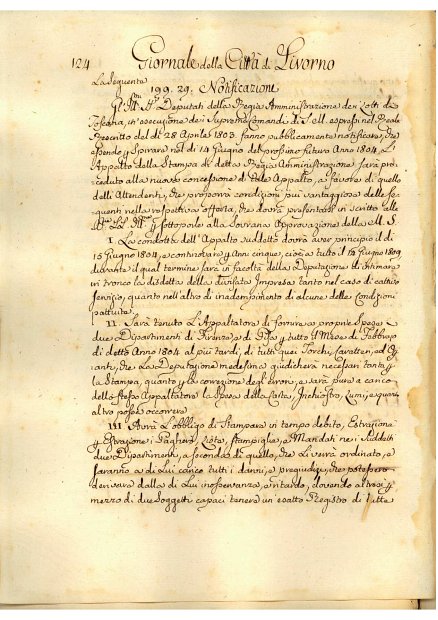 124 Giornale della Città di Livorno
La Seguente
199. 29. Notificazione
Gl' Ill.mi SS.ri Deputati della Regia Amministrazione dei Lotti di
Toscana, in esecuzione dei Supremi Comandi di S. M. espressi nel Reale
Rescritto del dì 28 Aprile 1803. fanno pubblicamente notificare, che
essendo p Spirare nel dì 14 Giugno del prossimo futuro Anno 1804. L'
Appalto della Stampa di detta Regia Amministrazione sarà pro-
ceduto alla nuova concessione di tale Appalto, a favore di quello
delli Attendenti, che proporrà condizioni più vantaggiose delle se-
guenti nella respettiva offerta, che dovrà presentarsi in scritto alle
p sottoporle alla Sovrana Approvazione della M. S.
I. La condotta dell' Appalto suddetto dovrà aver principio il dì
15 Giugno 1804, e continuare p Anni cinque, cioè a tutto il 14 Giugno 1809
durante il qual termine sarà in facoltà della Deputazione di intimare
in tronco la disdetta della divisata Impresa tanto nel caso di cattivo
servizio, quanto nell' altro di inadempimento di alcune delle Condizioni
pattuite.
II. Sarà tenuto L' Appaltatore di fornire a proprie Spese i
due Dipartimenti di Firenze, e di Pisa p tutto il Mese di Febbraio
di detto Anno 1804 al più tardi, di tutti quei Torchi, Caratteri, ed A-
ranti, che La Deputazione medesima giudicherà necessari tanto p
la Stampa, quanto p la correzione degli errori, e sarà pure a carico
dello stesso Appaltatore la Spesa della Carta, Inchiostro, Lumi, e quant'
altro possa occorrere.
III Avrà L' obbligo di Stampare in tempo debito, Estrazione
p Estrazione i Pagherò, Liste, Stampiglie, e Mandati nei suddetti
due Dipartimenti, a seconda di quello, che Li verrà ordinato, e
saranno a di Lui carico tutti i danni, e pregiudizi, che potessero
derivare dalla di Lui inosservanza, e ritardo, dovendo altresì p
mezzo di due Soggetti capaci tenere un' esatto Registro di tutte